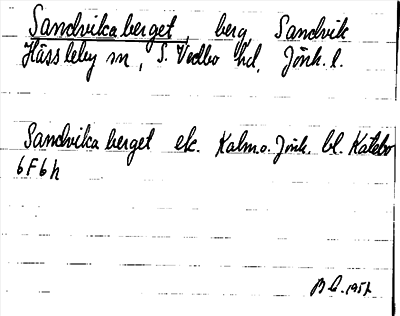 Sandvikaberget, berg, Sandvik
Hässleby sn, S. Vedbo hd, Jönk. l.
Sandvikaberget ek. Kalm. o. Jönk. bl. Katebo
6F6h